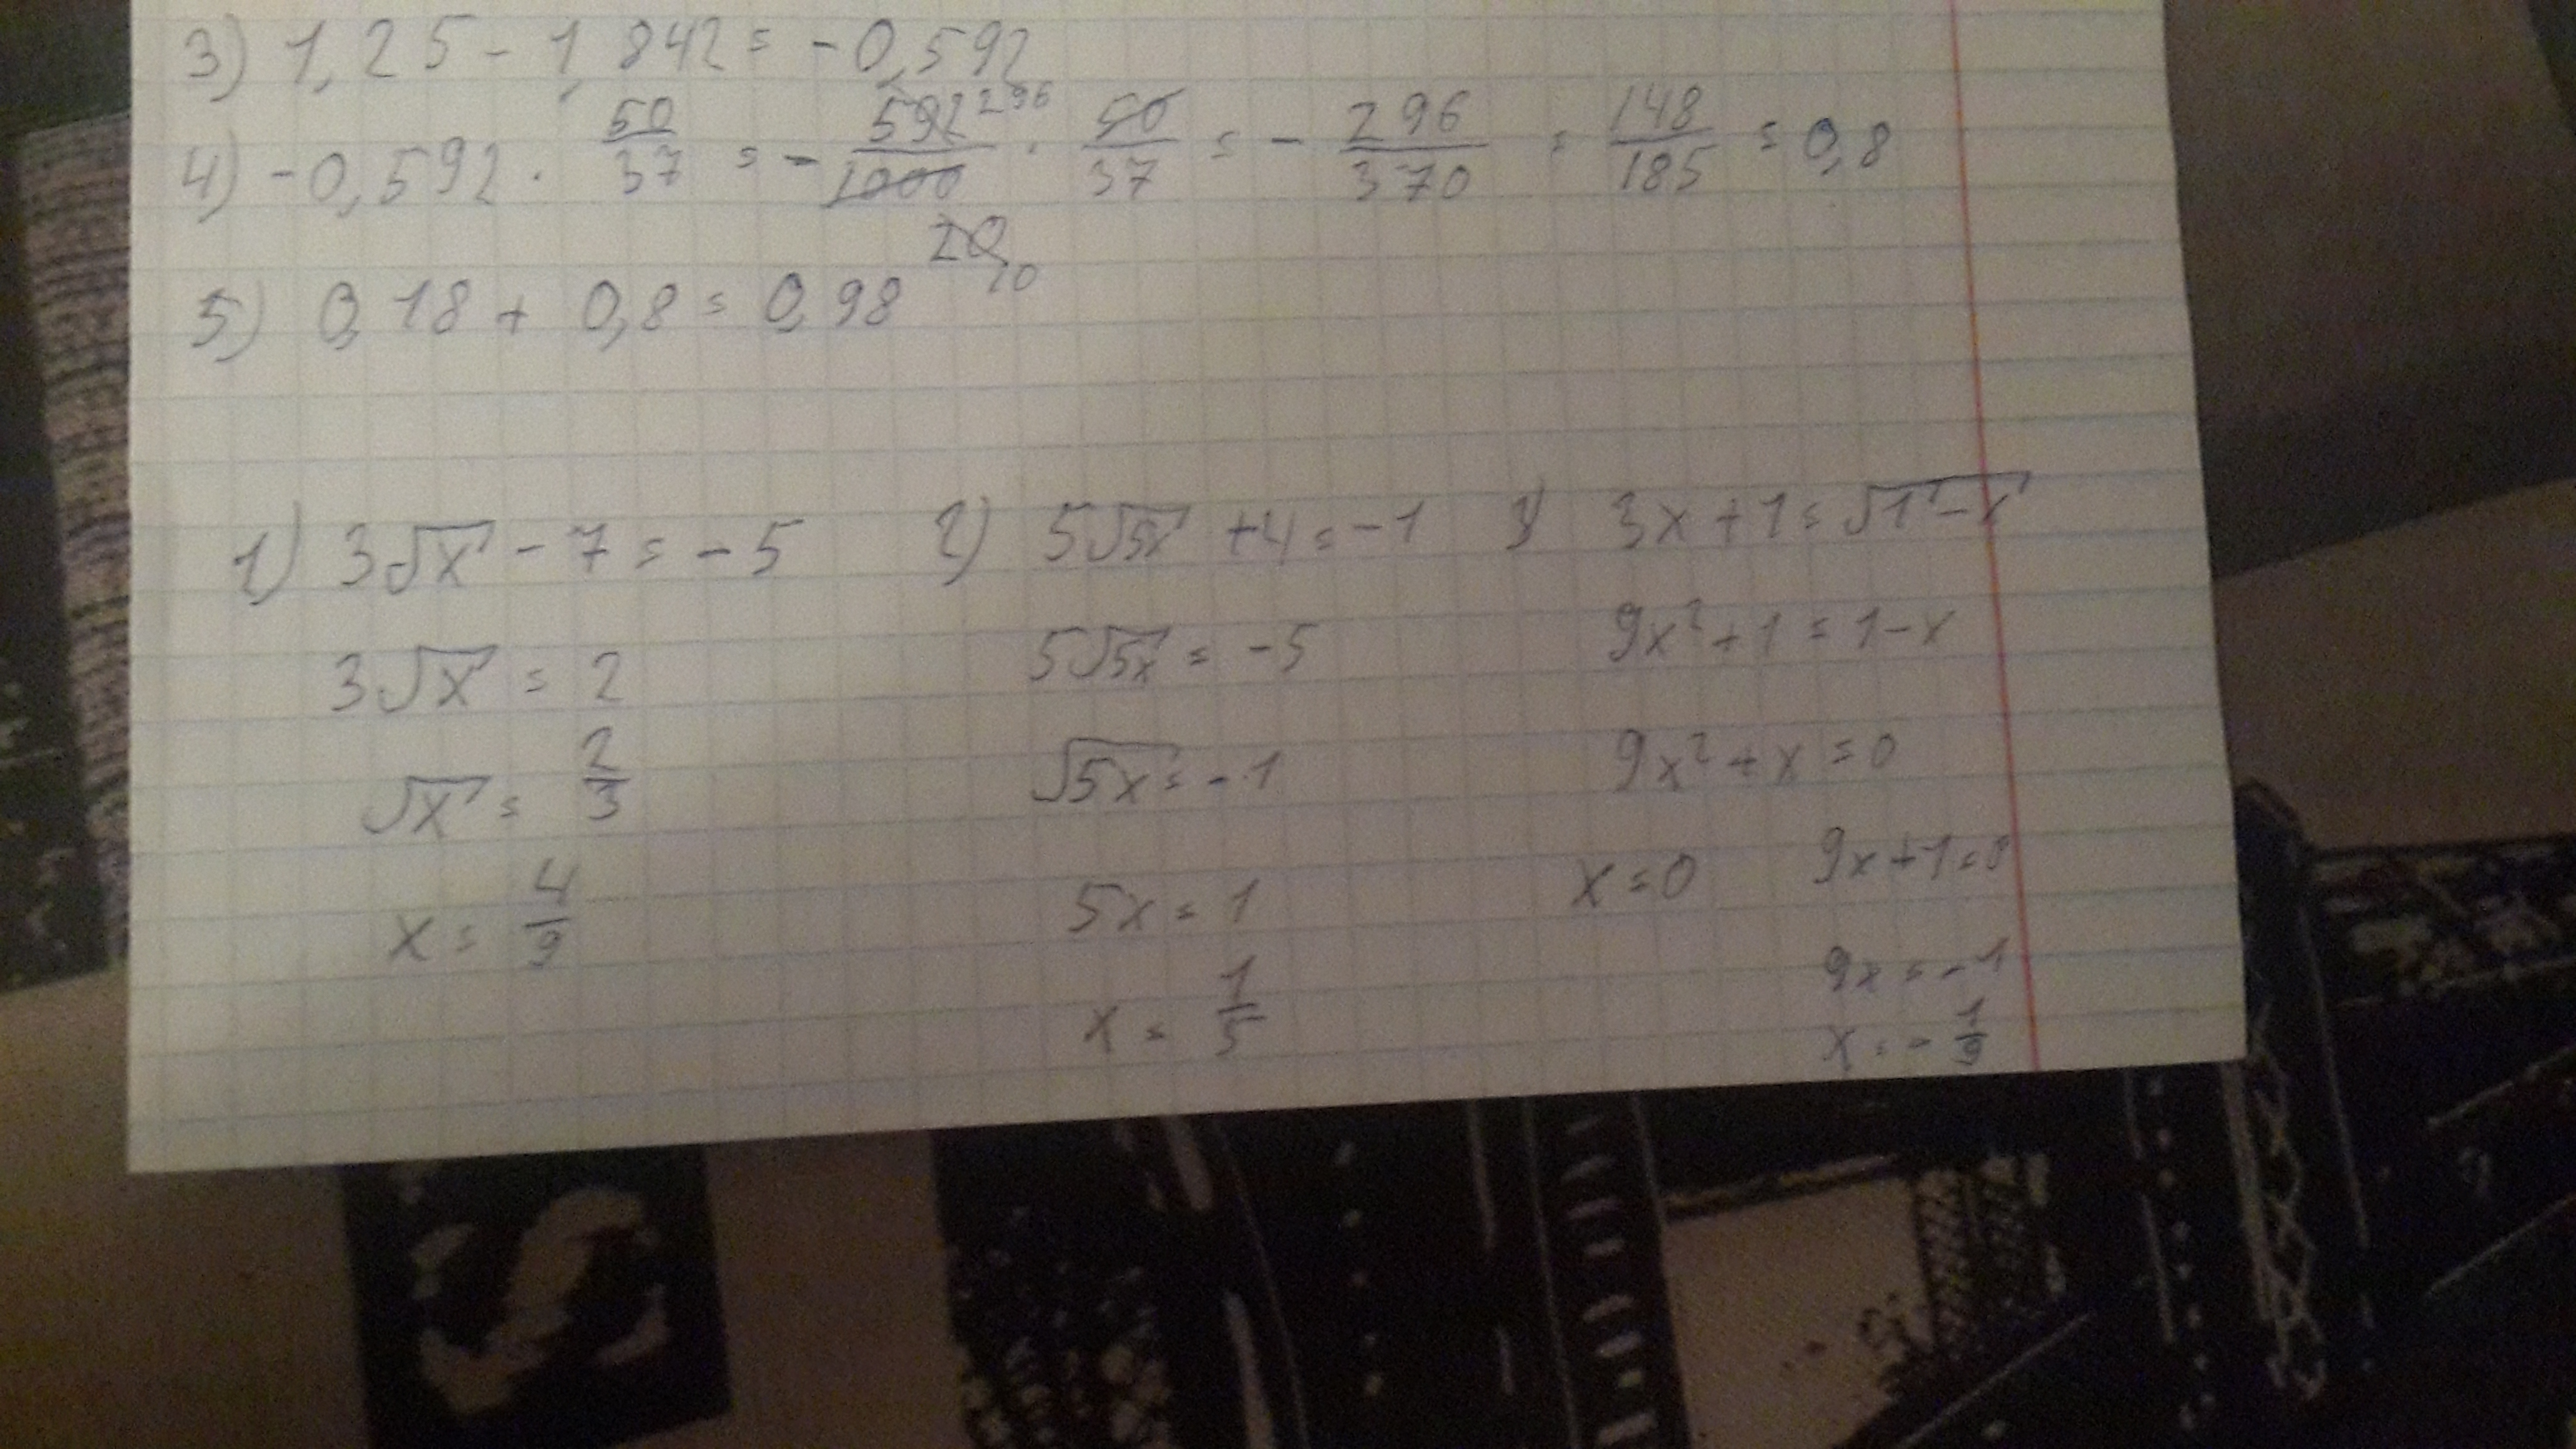 3) 1,25 - 1,842 = -0,592
4) -0,592 · 50/37 = - 592/1000 · 50/37 = - 296/370 = 148/185 = 0,8
296
20
10
5) 0,18 + 0,8 = 0,98
1) 3√x - 7 = -5
3√x = 2
√x = 2/3
x = 4/9
2) 5√5x + 4 = -1
5√5x = -5
√5x = -1
5x = 1
x = 1/5
3) 3x + 1 = √1-x
9x² + 1 = 1 - x
9x² + x = 0
x = 0 9x + 1 = 0
9x = -1
x = - 1/9